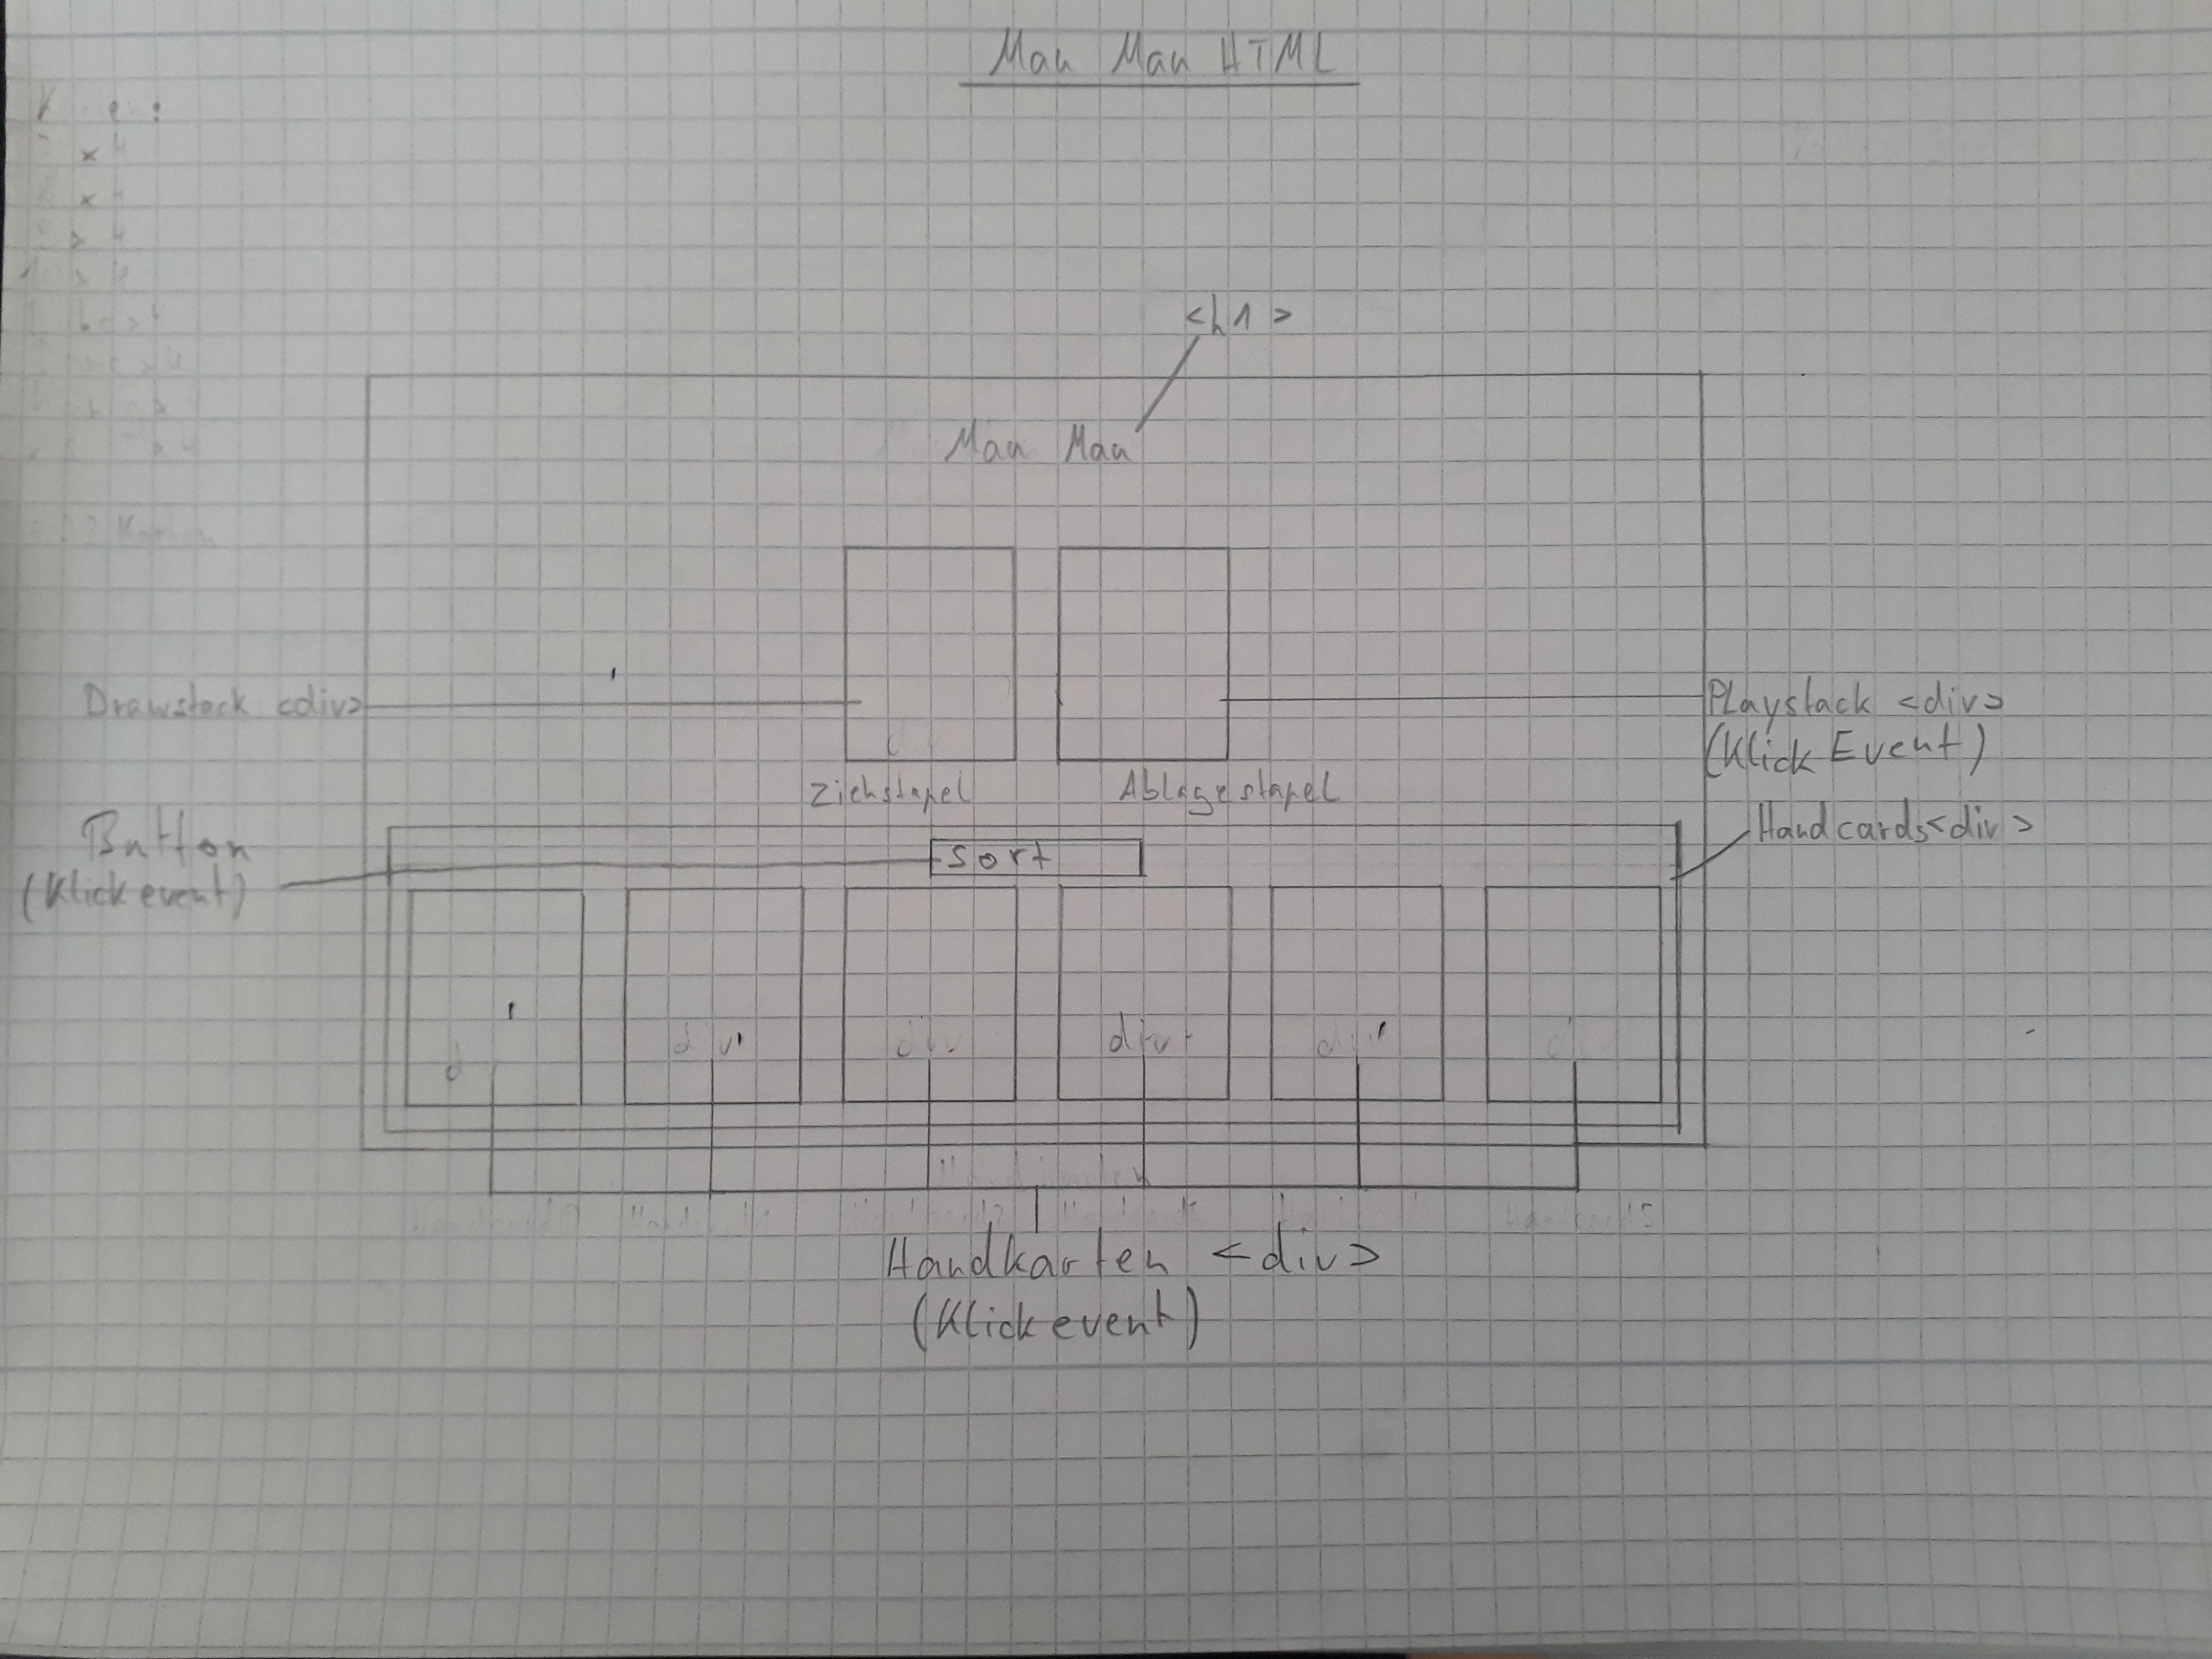 Mau Mau HTML
<h1>
Mau Mau
Drawstack <div>
Playstack <div>
(Klick Event)
Ziehstapel
Ablagestapel
Handcards<div>
Button
(Klickevent)
sort
div
div
div
div
div
Handkarten <div>
(Klickevent)